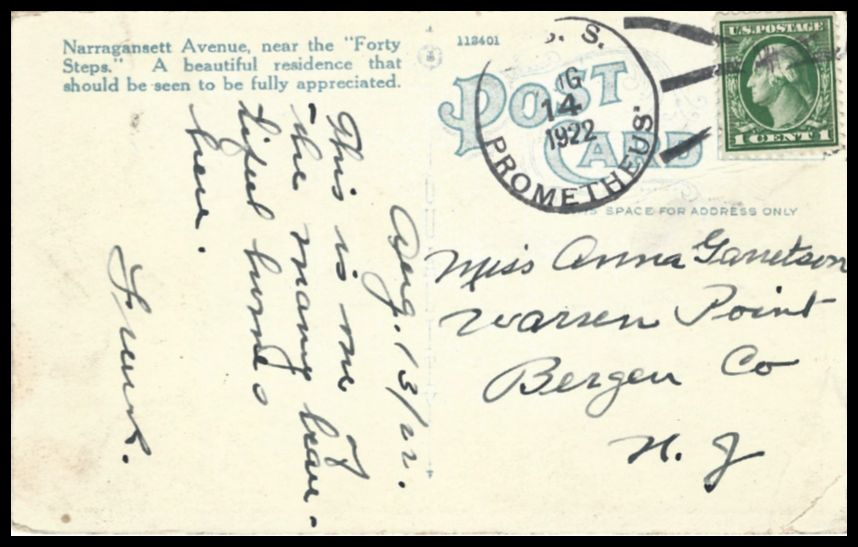 Narragansett Avenue, near the "Forty
Steps." A beautiful residence that
should be seen to be fully appreciated.
113401
POST
CARD
S. S.
14
1922
PROMETHEUS.
U.S. POSTAGE
1 CENT 1
SPACE FOR ADDRESS ONLY
Aug. 13/22.
This is one of
the many beau-
tiful homes
here.
Frank.
Miss Anna Garretson
Warren Point
Bergen Co
N. J